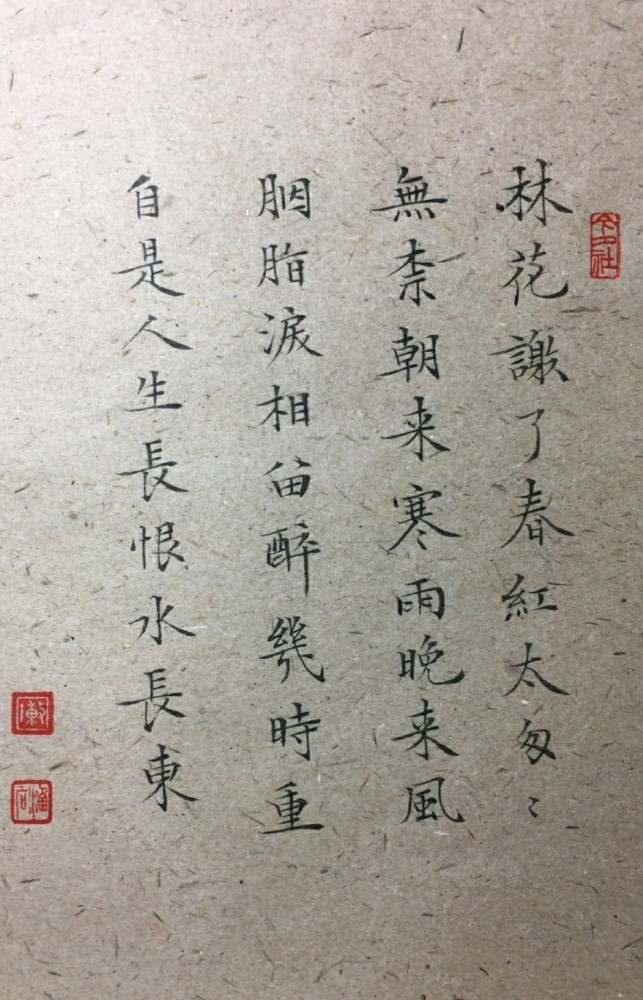 林花謝了春紅太匆〻
無柰朝来寒雨晚来風
胭脂淚相留醉幾時重
自是人生長恨水長東